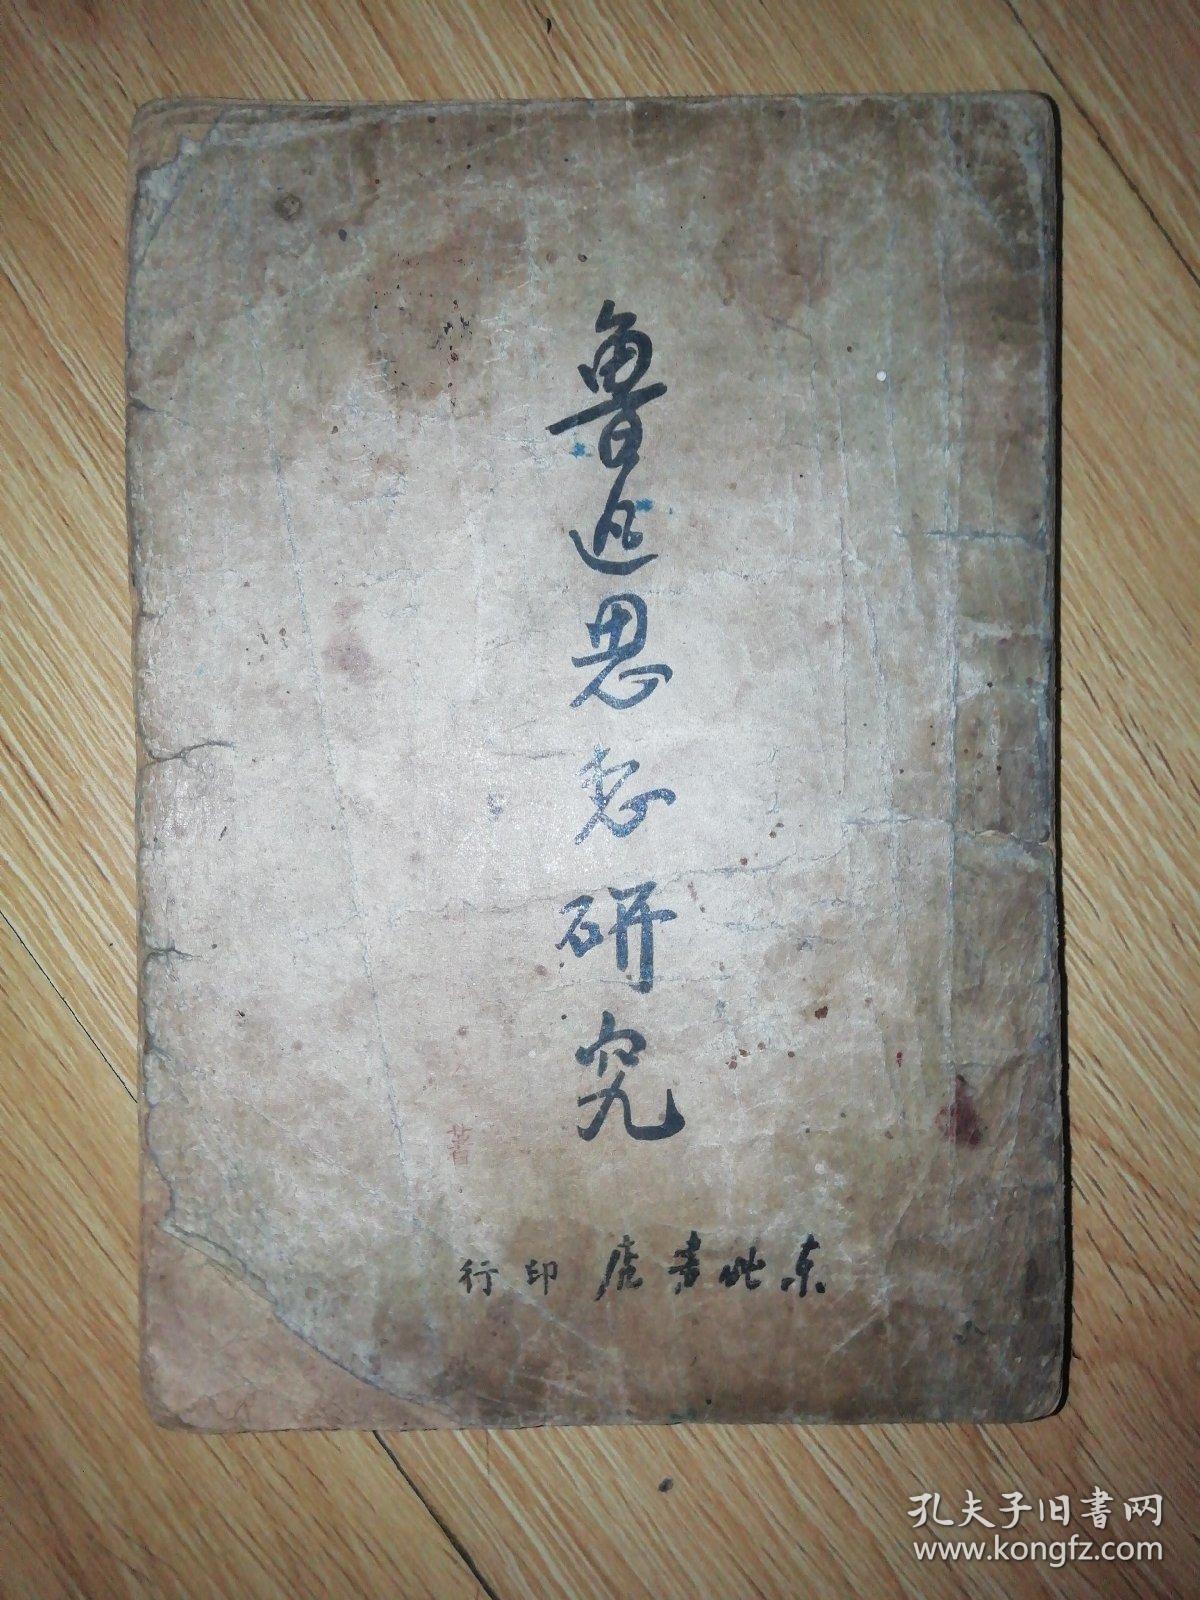 魯迅思想研究
著
東北書店 印行
孔夫子旧書网
www.kongfz.com